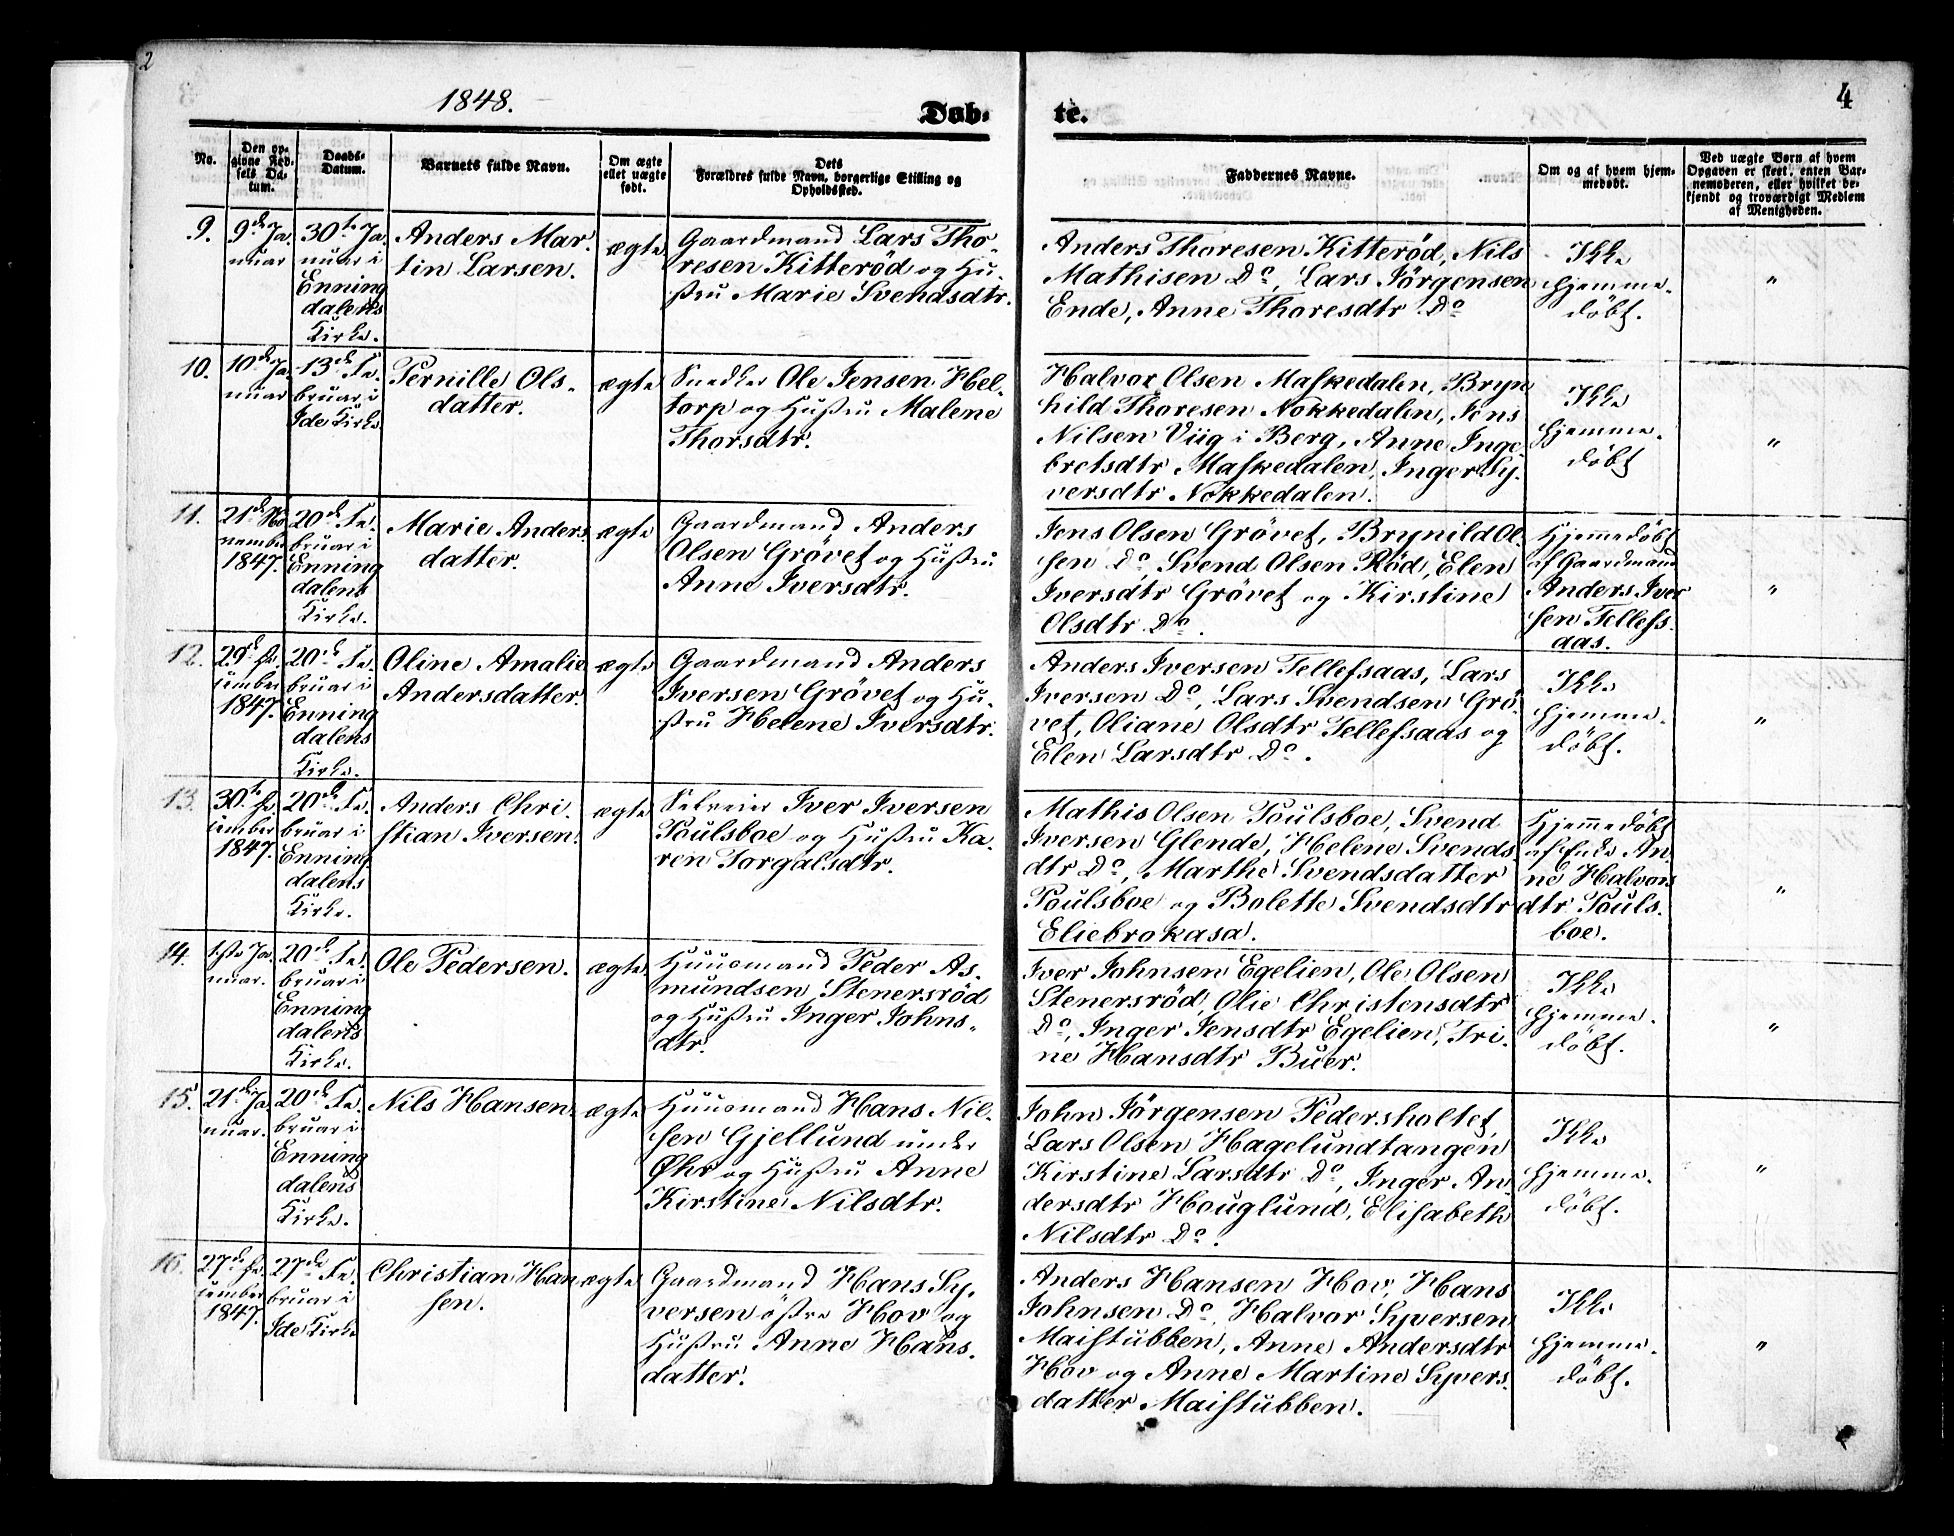 2
1848.
4
Døb-
te.
No.
Den op-
givne Fød-
sels Da-
tum.
Daabs-
Datum.
Barnets fulde Navn.
Om ægte
ellet uægte
født.
Dets
Forældres fulde Navn, borgerlige Stilling og
Opholdssted.
Faddernes Navne.
Om og af hvem hjem-
medøbt.
Ved uægte Børn af hvem
Opgaven er skeet, enten Bar-
nemoderen, eller hvilket be-
kjendt og troværdigt Medlem
af Menigheden.
9.
9de Ja-
nuar
30te Ja-
nuar i
Enning
dalens
Kirke.
Anders Mar-
tin Larsen.
ægte
Gaardmand Lars Tho-
resen Kitteröd og Hu-
stru Marie Svendsdtr.
Anders Thoresen Kitteröd, Nils
Mathisen Do, Lars Jörgensen
Ende, Anne Thoresdtr Do
Ikke
hjemme-
döbt.
"
10.
10de Ja-
nuar
13de Fe-
bruar i
Ide Kirke
Pernille Ols-
datter.
ægte
Snedker Ole Jensen Hel-
torp og Hustru Malene
Thorsdtr.
Halvor Olsen Maskedalen, Bryn
hild Thoresen Nokkedalen, Jens
Nilsen Viig i Berg, Anne Inge-
bretsdtr Maskedalen, Inger Sy-
versdtr Nokkedalen.
Ikke
hjemme-
döbt
"
11.
21de No
vember
1847.
20de Fe-
bruar i
Enning
dalens
Kirke.
Marie Anders
datter.
ægte
Gaardmand Anders
Olsen Grövet og Hustru
Anne Iversdtr.
Jens Olsen Grövet, Brynild Ol-
sen Do, Svend Olsen Röd, Elen
Iversdtr Grövet og Kirstine
Olsdtr Do.
Hjemmedöbt
af Gaardmand
Anders Iver
sen Tellefs-
aas.
"
12.
29de De-
cember
1847.
20de Fe-
bruar i
Enning
dalens
Kirke.
Oline Amalie
Andersdatter.
ægte
Gaardmand Anders
Iversen Grövet og Hu-
stru Helene Iversdtr.
Anders Iversen Tellefsaas, Lars
Iversen Do, Lars Svendsen Grö-
vet, Oliane Olsdtr Tellefsaas og
Elen Larsdtr Do.
Ikke
hjemme-
döbt.
"
13.
30te De
cember
1847.
20de Fe-
bruar i
Enning
dalens
Kirke.
Anders Chri-
stian Iversen.
ægte
Selveier Iver Iversen
Poulsboe og Hustru Ka-
ren Torgalsdtr.
Mathis Olsen Poulsboe, Svend
Iversen Glende, Helene Svends-
dtr Do, Marthe Svendsdatter
Poulsboe og Bolette Svendsdtr
Eliebrokasa.
Hjemmedöbt
af Enke An-
ne Halvors
dtr Pouls-
boe.
"
14.
1ste Ja-
nuar.
20de Fe-
bruar i
Enning
dalens
Kirke.
Ole Pedersen.
ægte
Huusmand Peder As-
mundsen Stenersröd
og Hustru Inger Johns-
dtr.
Iver Johnsen Egelien, Ole Olsen
Stenersröd, Olie Christensdtr
Do, Inger Jensdtr Egelien, Tri-
ne Hansdtr Buer.
Ikke
hjemme-
döbt.
"
15.
21de Ja-
nuar.
20de Fe-
bruar i
Enning
dalens
Kirke.
Nils Hansen
ægte
Huusmand Hans Nil-
sen Gjellund under
Øhr og Hustru Anne
Kirstine Nilsdtr.
John Jörgensen Pedersholtet,
Lars Olsen Hagelundtangen
Kirstine Larsdtr Do, Inger An
dersdtr Houglund, Elisabeth
Nilsdtr Do.
Ikke
hjemme-
döbt.
"
16.
27de De-
cember
1847.
27de Fe-
bruar i
Ide Kirke
Christian Han
sen.
ægte
Gaardmand Hans Sy-
versen östre Hov og
Hustru Anne Hans-
datter.
Anders Hansen Hov, Hans
Johnsen Do, Halvor Syversen
Maistubben, Anne Andersdtr
Hov og Anne Martine Syvers-
datter Maistubben.
Ikke
hjemme-
döbt.
"